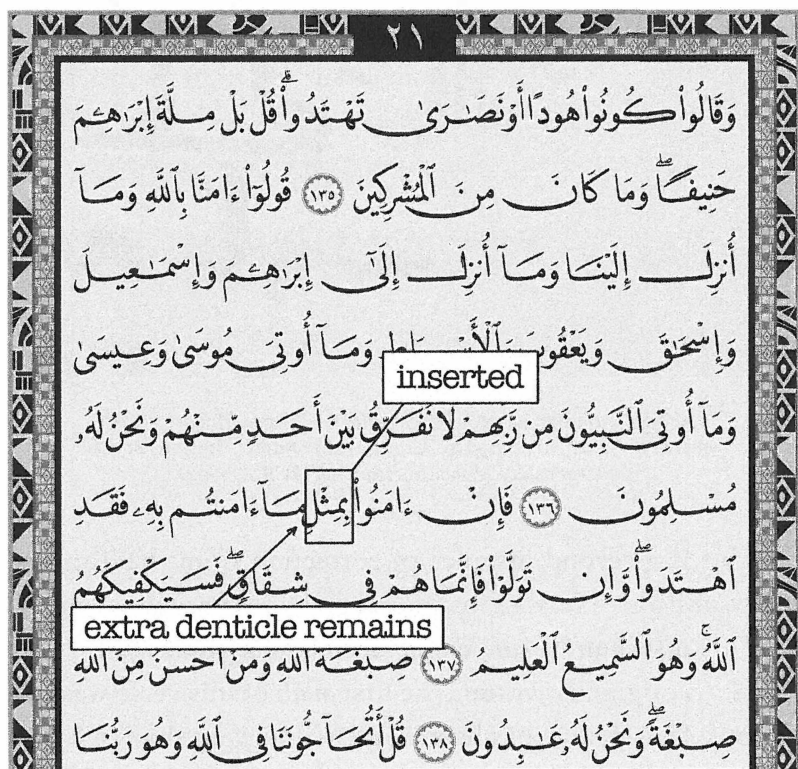 ٢١
وَقَالُوا۟ كُونُوا۟ هُودًا أَوْ نَصَـٰرَىٰ تَهْتَدُوا۟ ۗ قُلْ بَلْ مِلَّةَ إِبْرَٰهِـۧمَ
حَنِيفًا ۖ وَمَا كَانَ مِنَ ٱلْمُشْرِكِينَ ١٣٥ قُولُوٓا۟ ءَامَنَّا بِٱللَّهِ وَمَآ
أُنزِلَ إِلَيْنَا وَمَآ أُنزِلَ إِلَىٰٓ إِبْرَٰهِـۧمَ وَإِسْمَـٰعِيلَ
وَإِسْحَـٰقَ وَيَعْقُوبَ وَٱلْأَسْبَاطِ وَمَآ أُوتِىَ مُوسَىٰ وَعِيسَىٰ
inserted
وَمَآ أُوتِىَ ٱلنَّبِيُّونَ مِن رَّبِّهِمْ لَا نُفَرِّقُ بَيْنَ أَحَدٍ مِّنْهُمْ وَنَحْنُ لَهُۥ
مُسْلِمُونَ ١٣٦ فَإِنْ ءَامَنُوا۟ بِمِثْلِ مَآ ءَامَنتُم بِهِۦ فَقَدِ
ٱهْتَدَوا۟ ۖ وَّإِن تَوَلَّوْا۟ فَإِنَّمَا هُمْ فِى شِقَاقٍ ۖ فَسَيَكْفِيكَهُمُ
extra denticle remains
ٱللَّهُ ۚ وَهُوَ ٱلسَّمِيعُ ٱلْعَلِيمُ ١٣٧ صِبْغَةَ ٱللَّهِ وَمَنْ أَحْسَنُ مِنَ ٱللَّهِ
صِبْغَةً ۖ وَنَحْنُ لَهُۥ عَـٰبِدُونَ ١٣٨ قُلْ أَتُحَآجُّونَنَا فِى ٱللَّهِ وَهُوَ رَبُّنَا